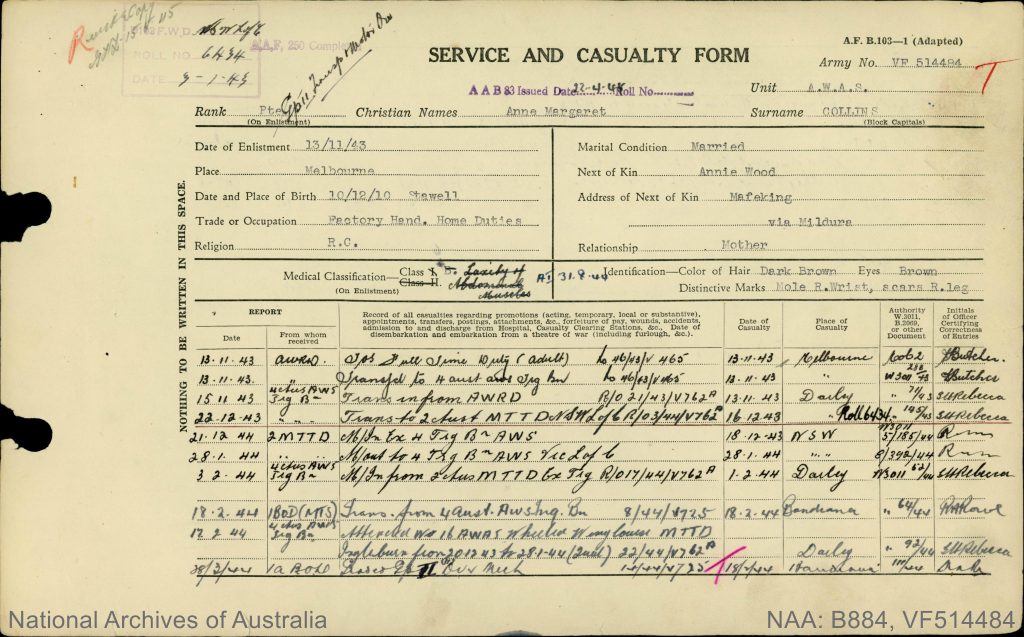 F.W.D.
ROLL NO 6434
DATE 3-1-45
A.A.F. 250
SERVICE AND CASUALTY FORM
A.F. B.103—1 (Adapted)
Army No. VF 514484
A A B 83 Issued Date 22-4-45 Roll No
Unit A.W.A.S.
Rank Pte Christian Names Anne Margaret Surname COLLINS
(On Enlistment) (Block Capitals)
Date of Enlistment 13/11/43
Place Melbourne
Date and Place of Birth 10/12/10 Stawell
Trade or Occupation Factory Hand. Home Duties
Religion R.C.
Marital Condition Married
Next of Kin Annie Wood
Address of Next of Kin Mafeking
via Mildura
Relationship Mother
Medical Classification—Class I. B. Laxity of A1 31.8.44
(On Enlistment) Class II. Abdominal Muscles
Identification—Color of Hair Dark Brown Eyes Brown
Distinctive Marks Mole R.Wrist, scars R.leg
NOTHING TO BE WRITTEN IN THIS SPACE.
REPORT
Date
From whom received
Record of all casualties regarding promotions (acting, temporary, local or substantive), appointments, transfers, postings, attachments, &c., forfeiture of pay, wounds, accidents, admission to and discharge from Hospital, Casualty Clearing Stations, &c., Date of disembarkation and embarkation from a theatre of war (including furlough, &c.).
Date of Casualty
Place of Casualty
Authority W.3011, B.2069, or other Document
Initials of Officer Certifying Correctness of Entries
13.11.43 AWRD Full Time Duty (Adult) to 46/43/V465 13.11.43 Melbourne Butcher
13.11.43 Transfd to 4 Aust AWS Trg Bn to 46/43/V465 13.11.43 " W3011 Butcher
15.11.43 4 Aus AWS Trg Bn Trans in from AWRD R/021/43/V762A 13.11.43 Darley " 71/43 Rebecca
22.12.43 " " " Trans to 2 Aust MTTD NSW L of C R/03/44/V762A 16.12.43 " Roll 6434 " 195/43 Rebecca
21.12.44 2 MTTD M/In Ex 4 Trg Bn AWS 18.12.43 NSW W3011 5/185/44
28.1.44 " " M/out to 4 Trg Bn AWS Vic L of C 28.1.44 " " 8/392/44
3.2.44 4 Aus AWS Trg Bn M/In from 2 Aus MTTD Ex Trg R/017/44/V762A 1.2.44 Darley W3011 52/44 Rebecca
18.2.44 1 BOD (MTS) Trans. from 4 Aust. AWS Trg. Bn 8/44/V725 18.2.44 Bandiana " 64/44
17.2.44 4 Aus AWS Trg Bn Attended No 16 AWAS Wheeled MTTD
Ingleburn from 20.12.43 to 28.1.44 22/44/V762A Darley " 92/44 Rebecca
T
National Archives of Australia
NAA: B884, VF514484